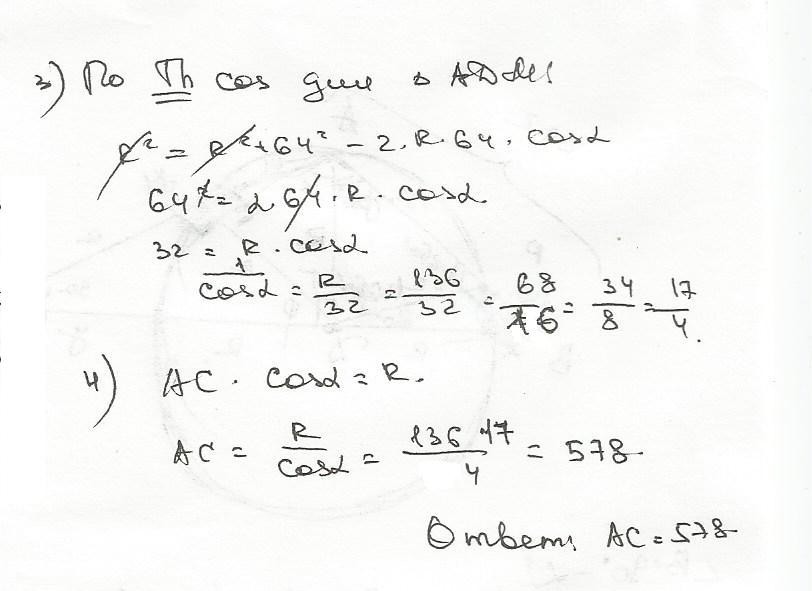 3) По Th cos для △
R² = R² + 64² - 2·R·64·cosα
64² = 2·64·R·cosα
32 = R·cosα
1/cosα = R/32 = 136/32 = 68/16 = 34/8 = 17/4.
4) AC · cosα = R.
AC = R/cosα = 136·17/4 = 578
Ответ: AC = 578